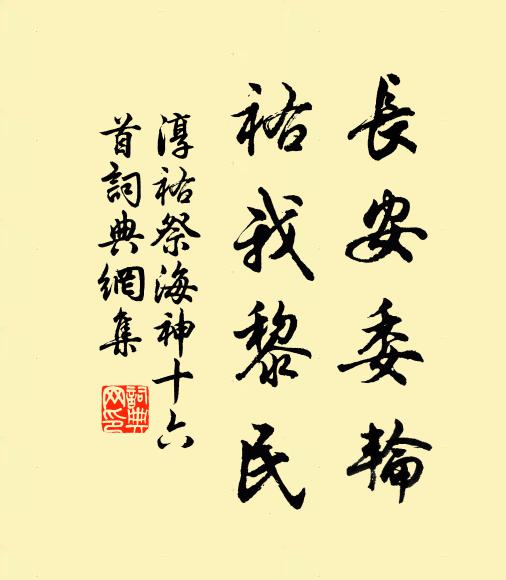 長安委輪
祐我黎民
淳祐祭海神十六
首詞典網集
詞典網印